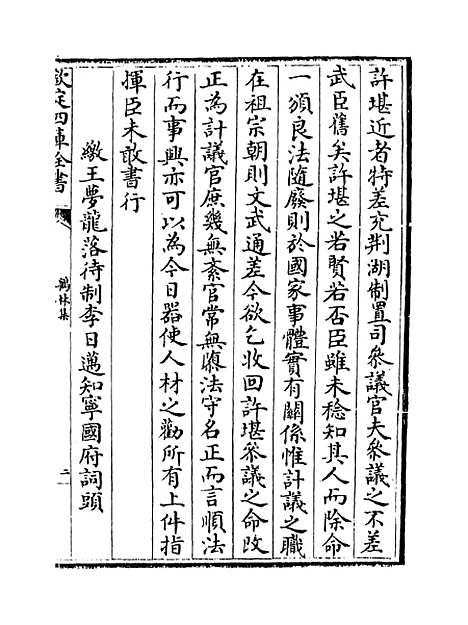 許堪近者特差充荆湖制置司參議官夫參議之不差
武臣舊矣許堪之若賢若否臣雖未稔知其人而除命
一頒良法隨廢則於國家事體實有關係惟計議之職
在祖宗朝則文武通差今欲乞收回許堪參議之命改
正為計議官庶幾無紊官常無隳法守名正而言順法
行而事興亦可以為今日器使人材之勸所有上件指
揮臣未敢書行
繳王夢龍落待制李日邁知寧國府詞頭
欽定四庫全書
鶴林集
二